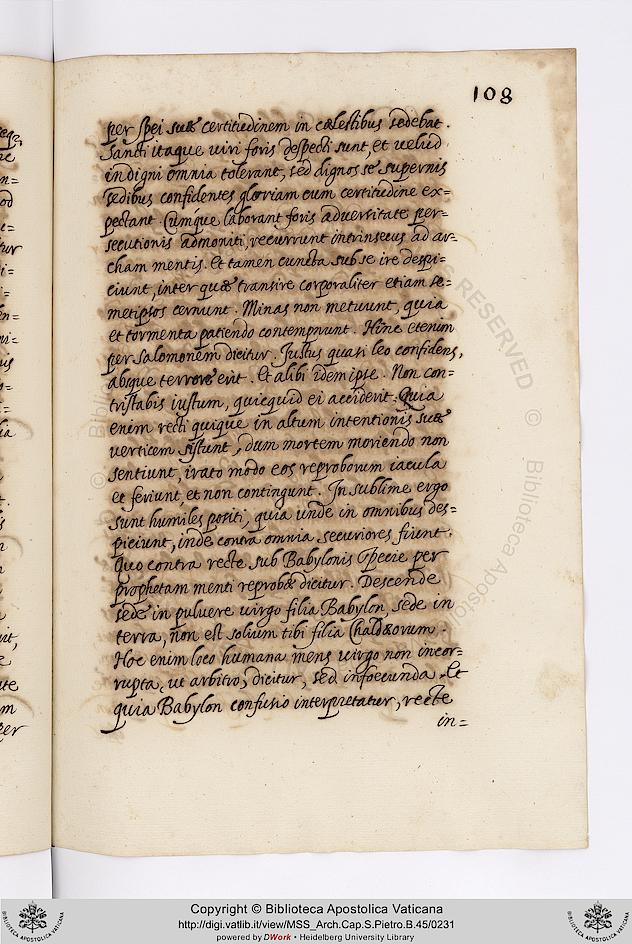 108
per spei suæ certitudinem in cælestibus sedebat.
Sancti itaque viri foris despecti sunt, et velud
indigni omnia tolerant, sed dignos se supernis
sedibus confidentes gloriam cum certitudine ex=
pectant. Cumque laborant foris adversitate per=
secutionis admoniti, recurrunt intrinsecus ad ar=
cham mentis. Et tamen cuncta sub se ire despi=
ciunt, inter quæ transire corporaliter etiam se=
metipsos cernunt. Minas non metuunt, quia
et tormenta patiendo contemnunt. Hinc etenim
per Salomonem dicitur. Justus quasi leo confidens,
absque terrore erit. Et alibi idem ipse. Non con=
tristabis iustum, quicquid ei acciderit. Quia
enim recti quique in altum intentionis suæ
verticem sistunt, dum mortem moriendo non
sentiunt, irato modo eos reproborum iacula
et feriunt, et non contingunt. In sublime ergo
sunt humiles positi, quia unde in omnibus des=
piciunt, inde contra omnia securiores fiunt.
Quo contra recte sub Babylonis specie per
prophetam menti reprobæ dicitur. Descende
sede in puluere virgo filia Babylon, sede in
terra, non est solium tibi filia Chaldæorum.
Hoc enim loco humana mens virgo non incor=
rupta, ut arbitror, dicitur, sed infoecunda. Et
quia Babylon confusio interpretatur, recte
in=
Copyright © Biblioteca Apostolica Vaticana
http://digi.vatlib.it/view/MSS_Arch.Cap.S.Pietro.B.45/0231
powered by DWork • Heidelberg University Library